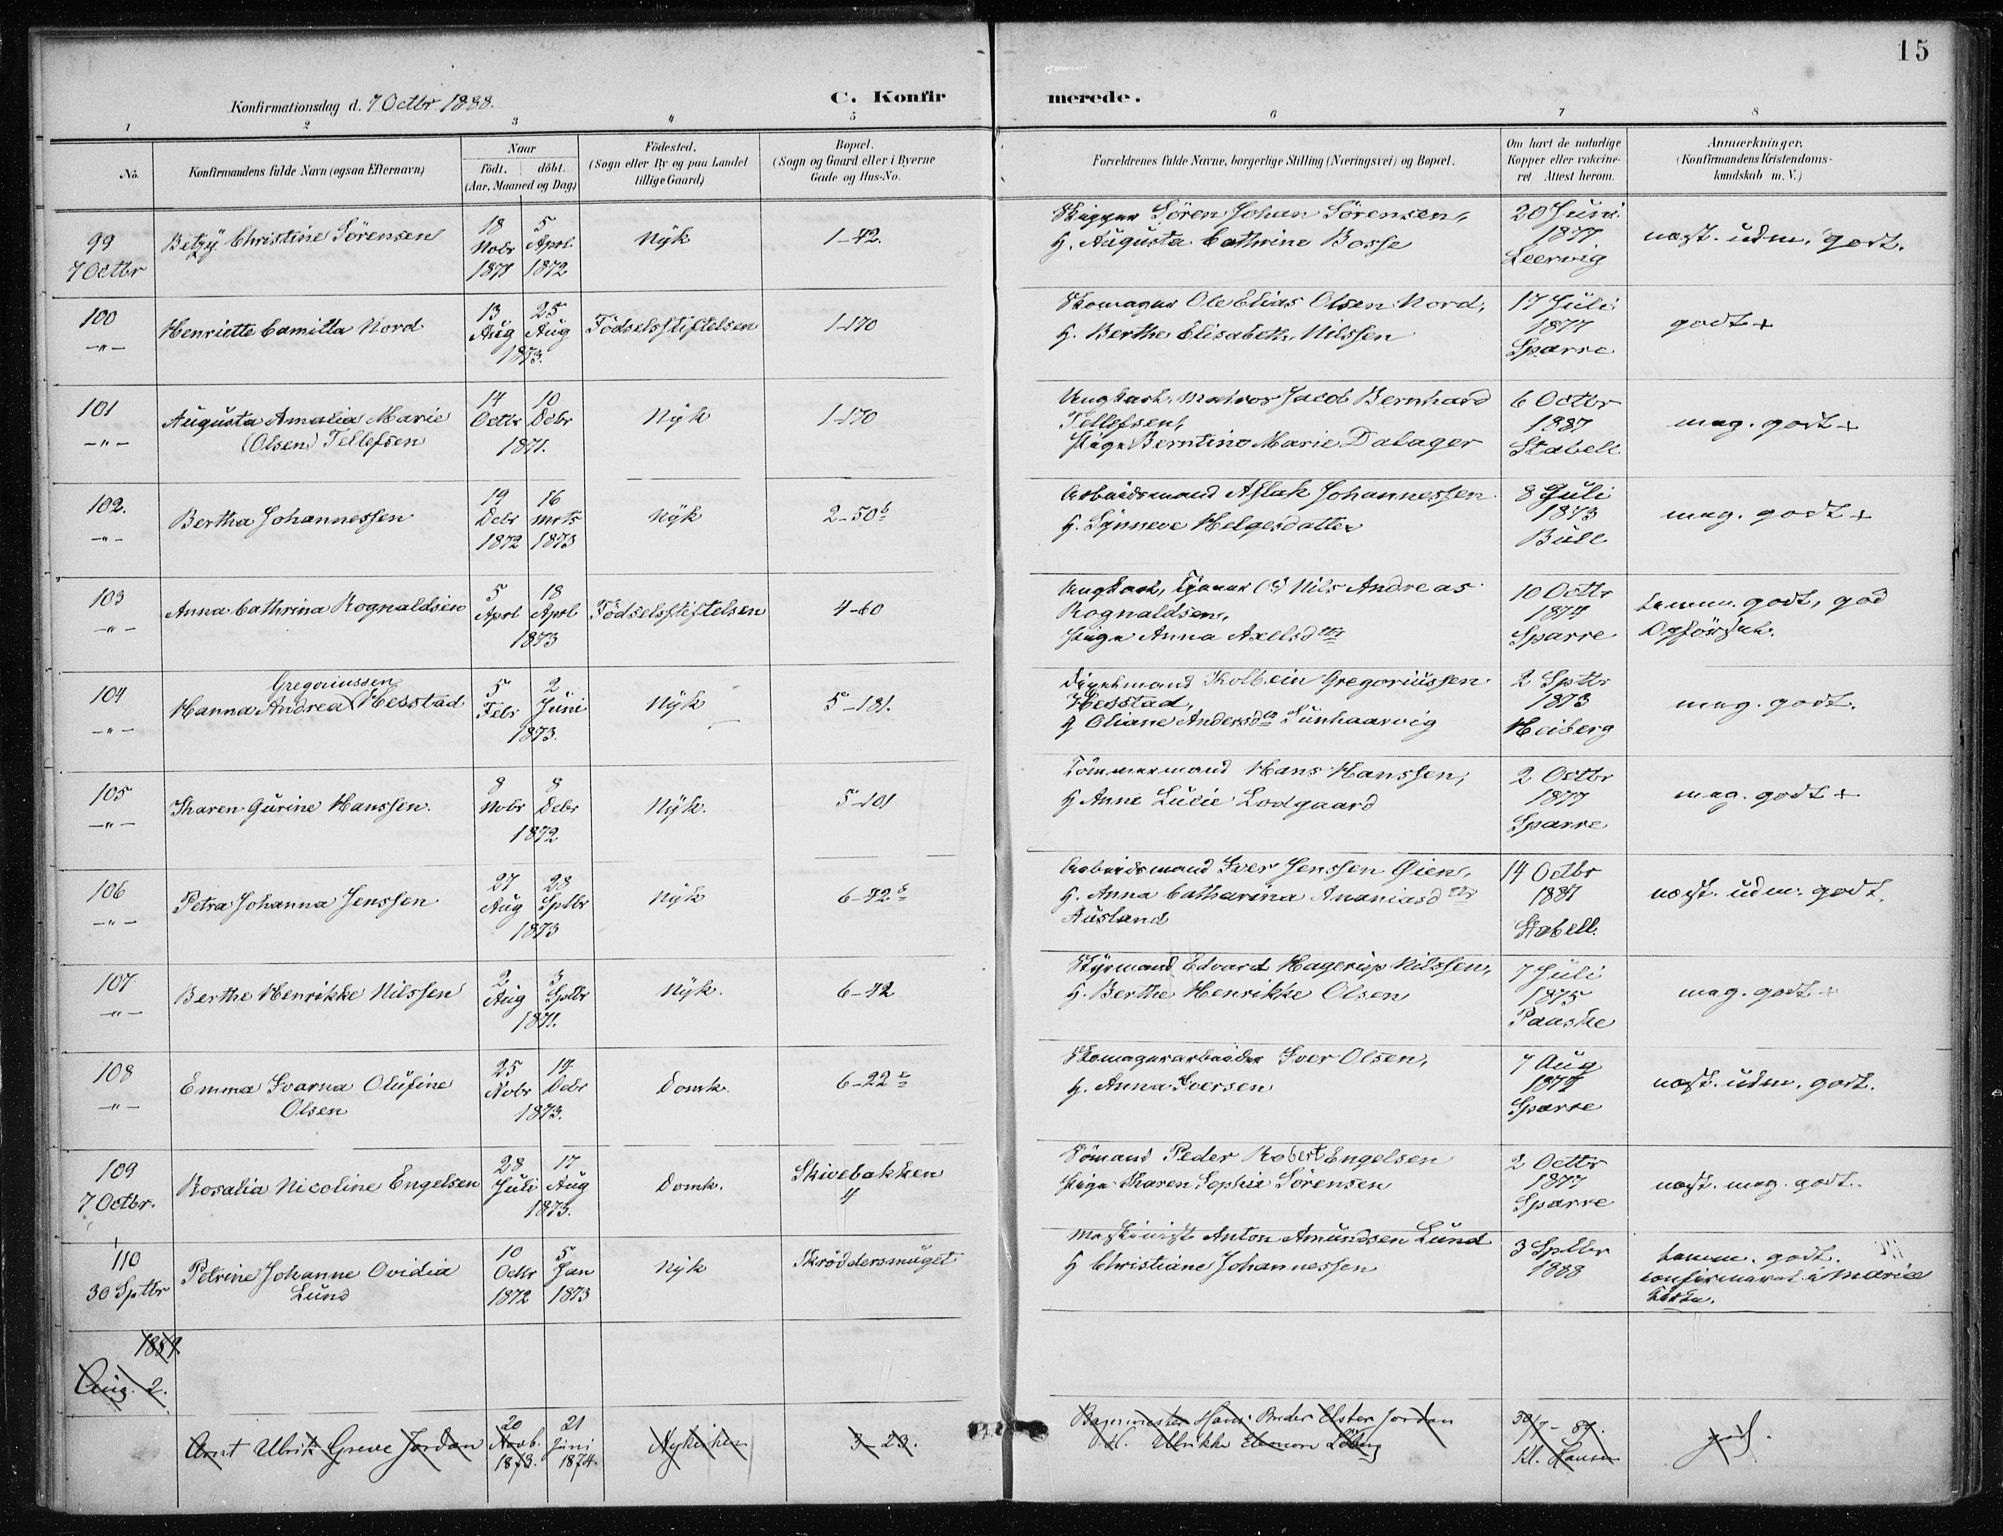 15
Konfirmationsdag d. 7 Octbr 1888.
C. Konfirmerede.
1 2 3 4 5 6 7 8
No.
Konfirmandens fulde Navn (ogsaa Efternavn)
Naar
födt. döbt.
(Aar, Maaned og Dag)
Födested.
(Sogn eller By og paa Landet
tillige Gaard)
Bopæl.
(Sogn og Gaard eller i Byerne
Gade og Hus-No.
Forældrenes fulde Navne, borgerlige Stilling (Næringsvei) og Bopæl.
Om havt de naturlige
Kopper eller vakcine-
ret. Attest herom.
Anmærkninger.
(Konfirmandens Kristendoms-
kundskab m. V.)
99
7 Octbr
Betzy Christine Sörensen
18 Novbr 1871
5 Aprl 1872
Nyk
1-42.
Skipper Sören Johan Sörensen,
H. Augusta Cathrine Bosse
20 Juni
1877
Leervig
næst. udm. godt.
100
-"-
Henriette Camilla Nord
13 Aug
25 Aug
1873.
Födselsstiftelsen
1-170
Skomager Ole Elias Olsen Nord,
H. Berthe Elisabeth Nilssen
17 Juli
1877
Sparre
godt +
101
-"-
Augusta Amalia Marie
(Olsen) Tellefsen
14 Octbr
10 Debr
1871.
Nyk
1-170
Ungkarl, Matros Jacob Bernhard
Tellefsen,
Pige Berntine Marie Dalager
6 Octbr
1887
Stabell
meg. godt +
102.
-"-
Bertha Johannessen
19 Debr 1872
16 Mrts 1873
Nyk
2-50b
Arbeidsmand Aslak Johannessen
H. Synneve Helgesdatter
8 Juli
1873
Bull
meg. godt +
103
-"-
Anna Cathrina Rognaldsen
5 Aprl
18 Aprl
1873
Födselsstiftelsen
4-60
Ungkarl, Tjener (?) Nils Andreas
Rognaldsen,
Pige Anna Axelsdtr
10 Octbr
1874
Sparre
temm. godt, god
Opförsel.
104
-"-
Gregoriussen
Hanna Andrea (Hesstad
5 Febr
2 Juni
1873.
Nyk
5-181.
Kolbein Gregoriussen
Hesstad,
H Oliane Andersdtr Sunhaarvig
2 Sptbr
1873
Heiberg
meg. godt.
105
-"-
Karen Gurine Hanssen.
8 Nobr
8 Debr
1872
Nyk.
5-101
Tömmermand Hans Hanssen,
H Anne Lucie Lodgaard
2 Octbr
1877
Sparre
meg. godt +
106
-"-
Petra Johanna Jenssen
27 Aug
28 Sptbr
1873
Nyk
6-42b
Arbeidsmand Iver Jenssen Øien,
H. Anna Catharina Ananiasdtr
Ausland
14 Octbr
1887
Stabell.
næst. udm. godt.
107
-"-
Berthe Henrikke Nilssen
2 Aug
3 Sptbr
1871.
Nyk.
6-42
Styrmand Edvard Hagerup Nilssen,
H. Berthe Henrikke Olsen
7 Juli
1875
Paaske
meg. godt +
108
-"-
Emma Ivarna Olufine
Olsen
25 Nobr
14 Debr
1873.
Domk.
6-22
Skomagerarbeider Iver Olsen,
H. Anna Iversen
7 Aug
1874
Sparre
næst. udm. godt.
109
7 Octbr.
Rosalia Nicoline Engelsen
28 Juli
17 Aug
1873.
Domk.
Skivebakken
4
Sömand Peder Robert Engelsen
Pige Karen Sophie Sörensen
2 Octbr
1877
Sparre
næst. meg. godt.
110
30 Sptbr
Petrine Johanne Ovidia
Lund
10 Octbr 1872
5 Jan 1873
Nyk
Skröddersmuget
Maskinist Anton Amundsen Lund
H Christiane Johannessen
3 Sptbr
1888
temm. godt.
confirmeret i Maria
Kirke.
1889.
Aug. 2.
Arnt Ulrik Greve Jordan
20 Novb. 1873.
21 Juni 1874.
Nykirken
3-23.
Bagermester Hans Peder Elster Jordan
H. Ulrikke Eleonore Löberg
30/7-87.
Kl. Hansen
godt.